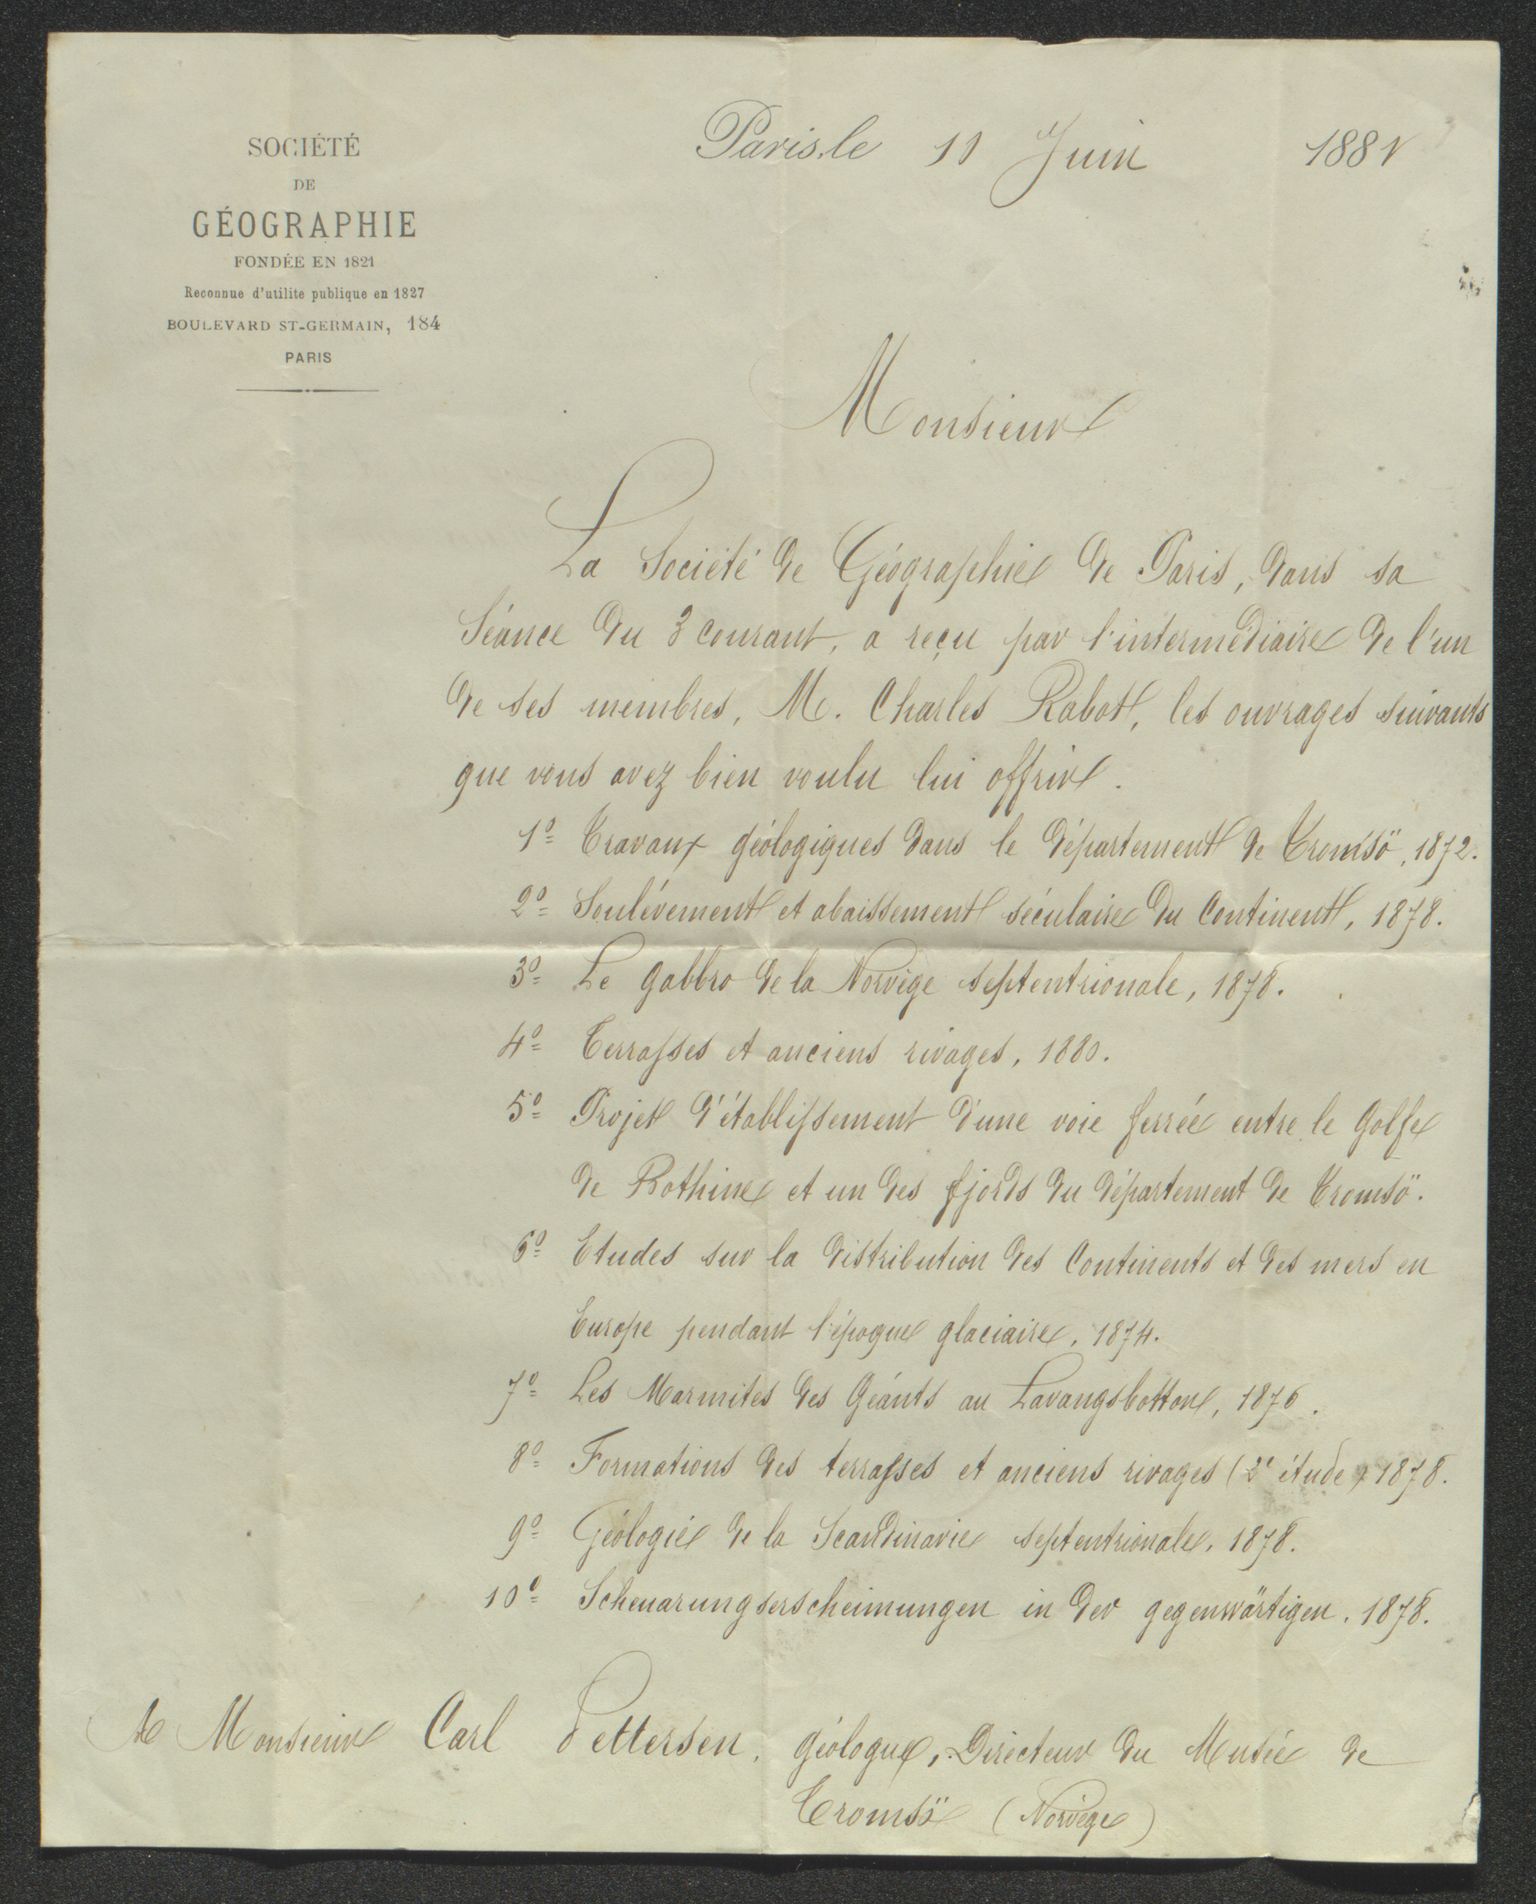 SOCIÉTÉ
DE
GÉOGRAPHIE
FONDÉE EN 1821
Reconnue d'utilite publique en 1827
BOULEVARD ST-GERMAIN, 184
PARIS
Paris, le 11 Juin 1881
Monsieur
La Société de Géographie de Paris, dans sa
Séance du 3 courant, a reçu par l'intermédiaire de l'un
de ses membres, M. Charles Rabot, les ouvrages suivants
que vous avez bien voulu lui offrir.
1º Travaux géologiques dans le département de Tromsö, 1872.
2º Soulévement et abaissement séculaire du Continent, 1878.
3º Le gabbro de la Norvège septentrionale, 1878.
4º Terrasses et anciens rivages, 1880.
5º Projet d'établissement d'une voie ferrée entre le Golfe
de Bothine et un des fjords du département de Tromsö.
6º Etudes sur la distribution des Continents et des mers en
Europe pendant l'époque glaciaire, 1874.
7º Les Marmites des Géants au Lavangsbotton, 1876.
8º Formations des terrasses et anciens rivages (2e étude) 1878.
9º Géologie de la Scandinavie septentrionale, 1878.
10º Scheuarungserscheimungen in der gegenwärtigen, 1878.
A Monsieur Carl Pettersen, géologue, Directeur du Musée de
Tromsö (Norvège)